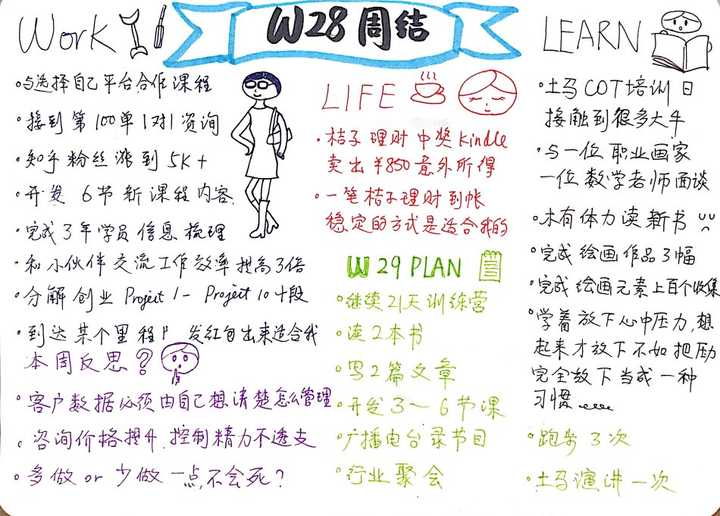 W28周结
Work
•与选择自己平台合作课程
•接到第100单1对1咨询
•知乎粉丝涨到5K+
•开发6节新课程内容
•完成3年学员信息梳理
•和小伙伴交流工作效率提高3倍
•分解创业Project 1-Project 10 十段
•到达某个里程 发红包出来适合我
本周反思?
•客户数据必须由自己想清楚怎么管理
•咨询价格提升,控制精力不透支
•多做or少做一点,不会死?
LIFE
•桔子理财中奖kindle
卖出¥850意外所得
•一笔桔子理财到帐
稳定的方式是适合我的
W29 PLAN
•继续21天训练营
•读2本书
•写2篇文章
•开发3~6节课
•广播电台录节目
•行业聚会
LEARN
•土马COT培训日
接触到很多大牛
•与一位职业画家
一位数学老师面谈
•木有体力读新书
•完成绘画作品3幅
•完成绘画元素上百个收集
•学着放下心中压力,想
起来才放下不如把励
完全放下当成一种
习惯
•跑步3次
•土马演讲一次